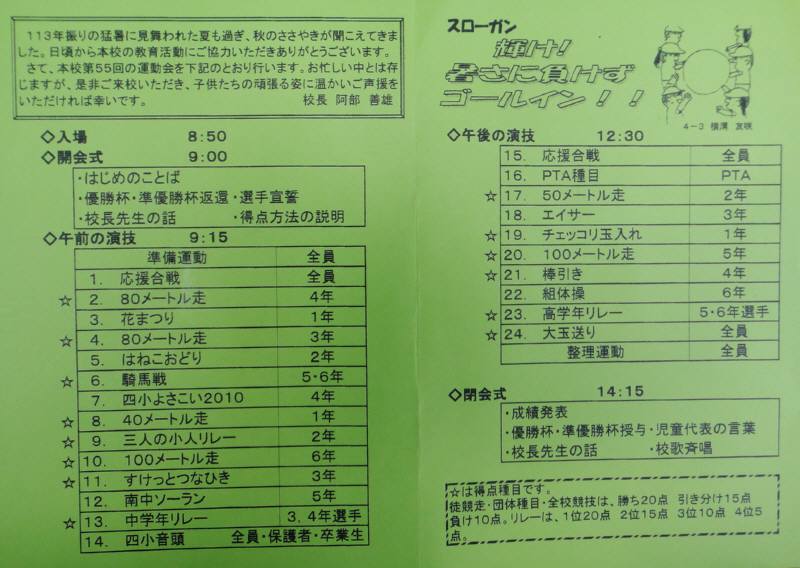 113年振りの猛暑に見舞われた夏も過ぎ、秋のささやきが聞こえてきま
した。日頃から本校の教育活動にご協力いただきありがとうございます。
さて、本校第55回の運動会を下記のとおり行います。お忙しい中とは存
じますが、是非ご来校いただき、子供たちの頑張る姿に温かいご声援を
いただければ幸いです。 校長 阿部 善雄
◇入場 8:50
◇開会式 9:00
・はじめのことば
・優勝杯・準優勝杯返還・選手宣誓
・校長先生の話 ・得点方法の説明
◇午前の演技 9:15
準備運動 全員
1. 応援合戦 全員
☆ 2. 80メートル走 4年
3. 花まつり 1年
☆ 4. 80メートル走 3年
5. はねこおどり 2年
☆ 6. 騎馬戦 5・6年
7. 四小よさこい2010 4年
☆ 8. 40メートル走 1年
☆ 9. 三人の小人リレー 2年
☆ 10. 100メートル走 6年
☆ 11. すけっとつなひき 3年
12. 南中ソーラン 5年
☆ 13. 中学年リレー 3.4年選手
14. 四小音頭 全員・保護者・卒業生
スローガン
輝け!
暑さに負けず
ゴールイン!!
4-3 横濱 友咲
◇午後の演技 12:30
15. 応援合戦 全員
16. PTA種目 PTA
☆ 17. 50メートル走 2年
18. エイサー 3年
☆ 19. チェッコリ玉入れ 1年
☆ 20. 100メートル走 5年
☆ 21. 棒引き 4年
22. 組体操 6年
☆ 23. 高学年リレー 5・6年選手
☆ 24. 大玉送り 全員
整理運動 全員
◇閉会式 14:15
・成績発表
・優勝杯・準優勝杯授与・児童代表の言葉
・校長先生の話 ・校歌斉唱
☆は得点種目です。
徒競走・団体種目・全校競技は、勝ち20点 引き分け15点
負け10点。リレーは、1位20点 2位15点 3位10点 4位5
点。